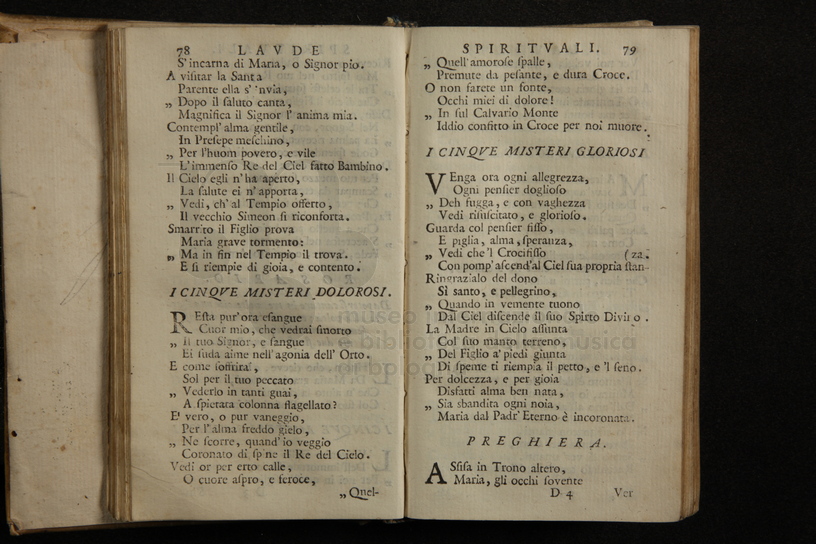 78 LAVDE
S'incarna di Maria, o Signor pio.
A visitar la Santa
Parente ella s'invia,
„ Dopo il saluto canta,
Magnifica il Signor l'anima mia.
Contempl'alma gentile,
In Presepe meschino,
„ Per l'huom povero, e vile
L'immenso Re del Ciel fatto Bambino.
Il Cielo egli n'ha aperto,
La salute ei n'apporta,
„ Vedi, ch'al Tempio offerto,
Il vecchio Simeon si riconforta.
Smarrito il Figlio prova
Maria grave tormento:
„ Ma in fin nel Tempio il trova.
E si riempie di gioia, e contento.
I CINQVE MISTERI DOLOROSI.
REsta pur'ora esangue
Cuor mio, che vedrai smorto
„ Il tuo Signor, e sangue
Ei suda aime nell'agonia dell'Orto.
E come soffrirà,
Sol per il tuo peccato
„ Vederlo in tanti guai,
A spietata colonna flagellato?
E' vero, o pur vaneggio,
Per l'alma freddo gielo,
„ Ne scorre, quand'io veggio
Coronato di spine il Re del Cielo.
Vedi or per erto calle,
O cuore aspro, e feroce,
„ Quel-
SPIRITVALI. 79
„ Quell'amorose spalle,
Premute da pesante, e dura Croce.
O non farete un fonte,
Occhi miei di dolore!
„ In sul Calvario Monte
Iddio confitto in Croce per noi muore.
I CINQVE MISTERI GLORIOSI
VEnga ora ogni allegrezza,
Ogni pensier doglioso
„ Deh fugga, e con vaghezza
Vedi risuscitato, e glorioso.
Guarda col pensier fisso,
E piglia, alma, speranza,
„ Vedi che'l Crocifisso (za.
Con pomp'ascend'al Ciel sua propria stan-
Ringrazialo del dono
Sì santo, e pellegrino,
„ Quando in vemente tuono
Dal Ciel discende il suo Spirto Divino.
La Madre in Cielo assunta
Col suo manto terreno,
„ Del Figlio a'piedi giunta
Di speme ti riempia il petto, e'l seno.
Per dolcezza, e per gioia
Disfatti alma ben nata,
„ Sia sbandita ogni noia,
Maria dal Padr'Eterno è incoronata.
PREGHIERA.
ASsisa in Trono altero,
Maria, gli occhi sovente
D 4 Ver